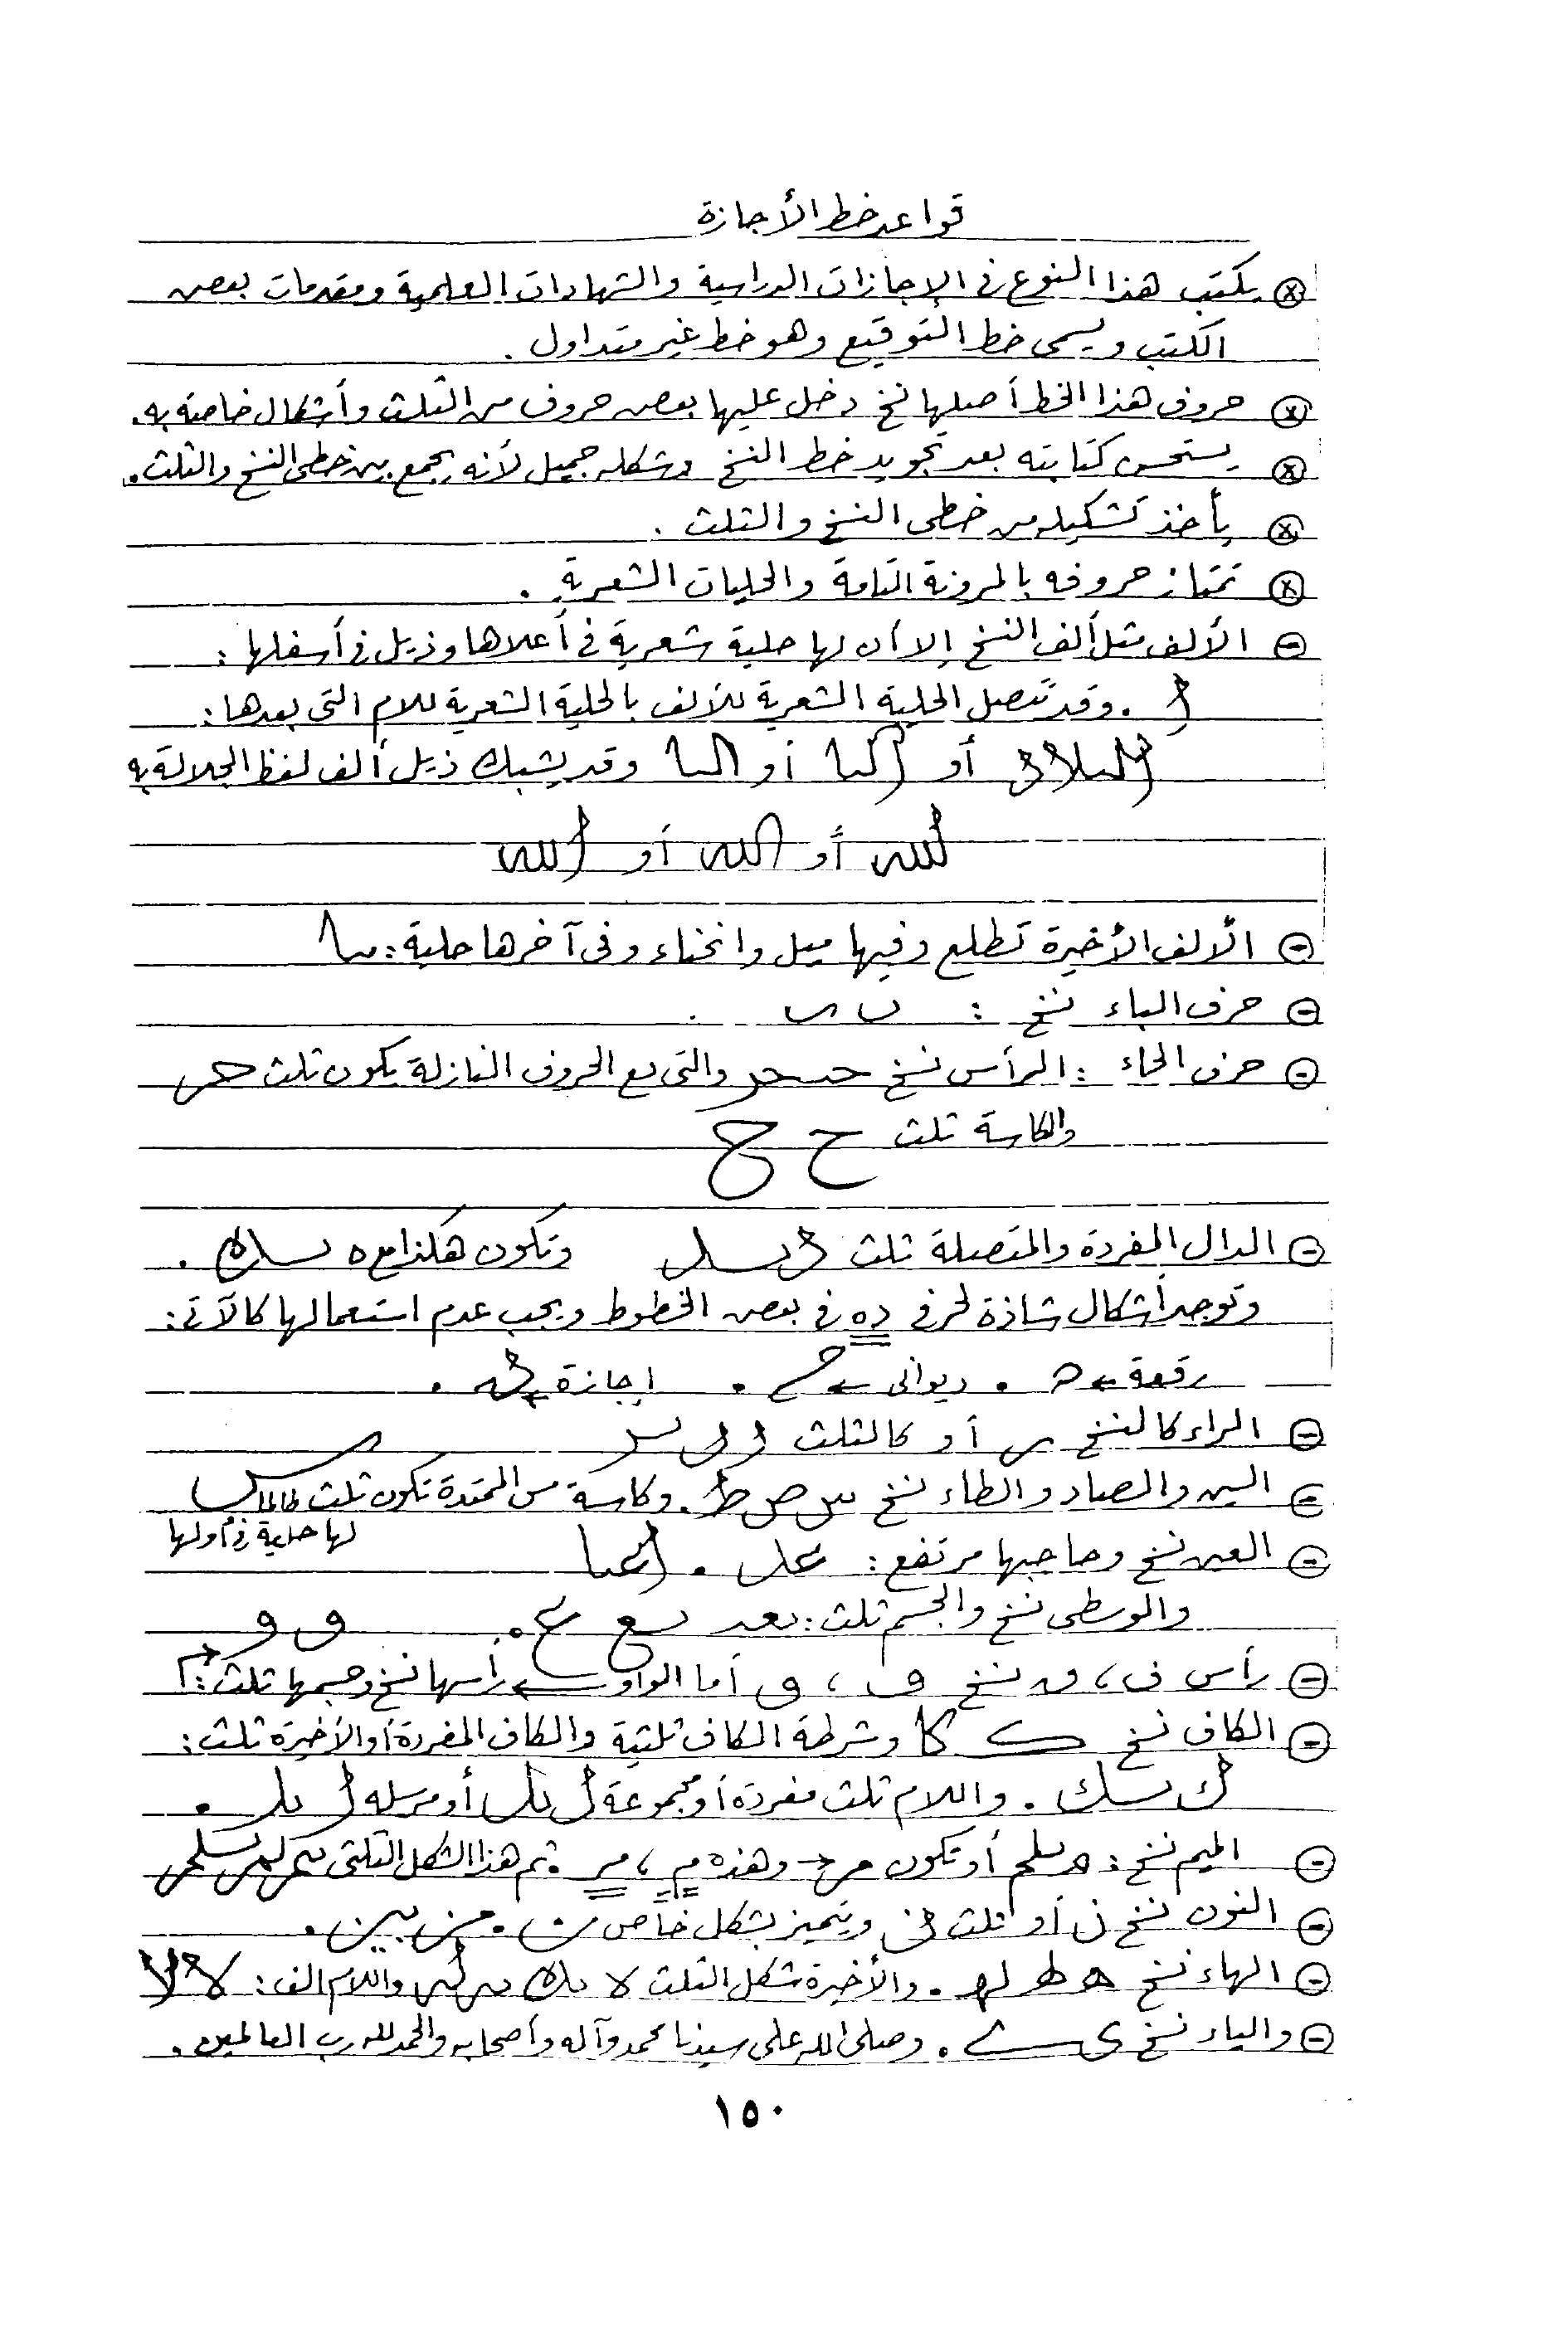 قواعد خط الأجازة
⊗ يكتب هذا النوع فى الإجازات الدراسية والشهادات العلمية ومقدمات بعض
الكتب ويسمى خط التوقيع وهو خط غير متداول .
⊗ حروف هذا الخط أصلها نسخ دخل عليها بعض حروف من الثلث وأشكال خاصة به .
⊗ يستحسن كتابته بعد تجويد خط النسخ وشكله جميل لأنه يجمع بين خطى النسخ والثلث .
⊗ يأخذ تشكيله من خطى النسخ والثلث .
⊗ تمتاز حروفه بالمرونة التامة والحليات الشعرية .
⊖ الألف مثل ألف النسخ إلا أن لها حلية شعرية فى أعلاها وذيل فى أسفلها :
ا . وقد تتصل الحلية الشعرية للألف بالحلية الشعرية للام التى بعدها :
أو أو وقد يشبك ذيل ألف لفظ الجلالة به
الله أو الله أو الله
⊖ الألف الأخيرة تطلع وفيها ميل وانحناء وفى آخرها حلية : ـا
⊖ حرف الباء نسخ :
⊖ حرف الحاء : الرأس نسخ والتى مع الحروف النازلة تكون ثلث
والكاسة ثلث ح ح
⊖ الدال المفردة والمتصلة ثلث وتكون هكذا مع ه .
وتوجد أشكال شاذة لحرفى ده فى بعض الخطوط ويجب عدم استعمالها كالآتى :
رقعة ← . ديوانى ← . اجازة ← .
⊖ الراء كالنسخ ر أو كالثلث
⊖ السين والصاد والطاء نسخ س ص ط . وكاسة س الممتدة تكون ثلث طالما
لها حلية فى أولها
⊖ العين نسخ وحاجبها مرتفع :
والوسطى نسخ والجسم ثلث : بعد ـع ع . و و
⊖ رأس ف ، ق نسخ ف ، ق أما الواو ← رأسها نسخ وجسمها ثلث :
⊖ الكاف نسخ كا وشرطة الكاف ثلثية والكاف المفردة أو الأخيرة ثلث :
ك ـك . واللام ثلث مفردة أو مجموعة ل أو مرسلة ل .
⊖ الميم نسخ : أو تكون م وهذه م ، م . ثم هذا الشكل الثلثى
⊖ النون نسخ ن أو ثلث ن ويتميز بشكل خاص ن . من بين .
⊖ الهاء نسخ ه . والأخيرة شكل الثلث واللام الف : لا لا
⊖ والياء نسخ ى . وصلى الله على سيدنا محمد وآله وأصحابه والحمد لله رب العالمين .
١٥٠